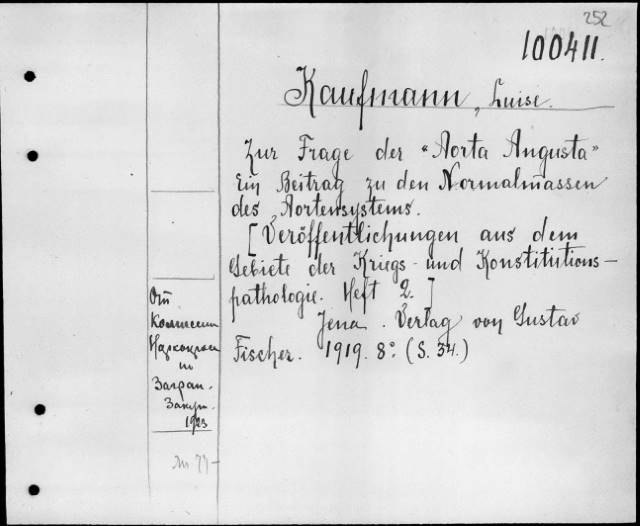 252
100411.
Kaufmann, Luise.
Zur Frage der "Aorta Angusta"
Ein Beitrag zu den Normalmassen
des Aortensystems.
[Veröffentlichungen aus dem
Gebiete der Kriegs- und Konstitutions-
pathologie. Heft 2.]
Jena. Verlag von Gustav
Fischer. 1919. 8° (S. 34.)
От
Комиссии
Наркомпроса
по
Загран.
Закуп.
1923